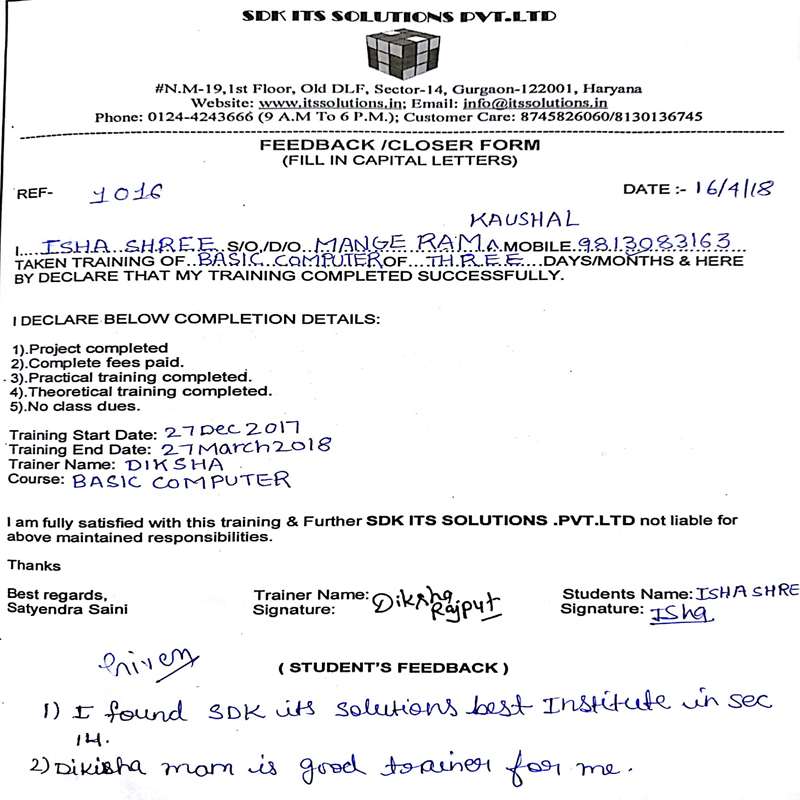 SDK ITS SOLUTIONS PVT.LTD
#N.M-19,1st Floor, Old DLF, Sector-14, Gurgaon-122001, Haryana
Website: www.itssolutions.in; Email: info@itssolutions.in
Phone: 0124-4243666 (9 A.M To 6 P.M.); Customer Care: 8745826060/8130136745
FEEDBACK /CLOSER FORM
(FILL IN CAPITAL LETTERS)
REF- 1016 DATE :- 16/4/18
KAUSHAL
I....ISHA SHREE..S/O,/D/O..MANGE RAM^.MOBILE.9813083163...
TAKEN TRAINING OF..BASIC COMPUTER OF...THREE...DAYS/MONTHS & HERE
BY DECLARE THAT MY TRAINING COMPLETED SUCCESSFULLY.
I DECLARE BELOW COMPLETION DETAILS:
1).Project completed
2).Complete fees paid.
3).Practical training completed.
4).Theoretical training completed.
5).No class dues.
Training Start Date: 27 Dec 2017
Training End Date: 27 March 2018
Trainer Name: DIKSHA
Course: BASIC COMPUTER
I am fully satisfied with this training & Further SDK ITS SOLUTIONS .PVT.LTD not liable for
above maintained responsibilities.
Thanks
Best regards, Trainer Name: Diksha Students Name: ISHA SHRE
Satyendra Saini Signature: Rajput Signature: Isha
( STUDENT'S FEEDBACK )
1) I found SDK its solutions best Institute in sec
14.
2) Dikisha mam is good trainer for me.